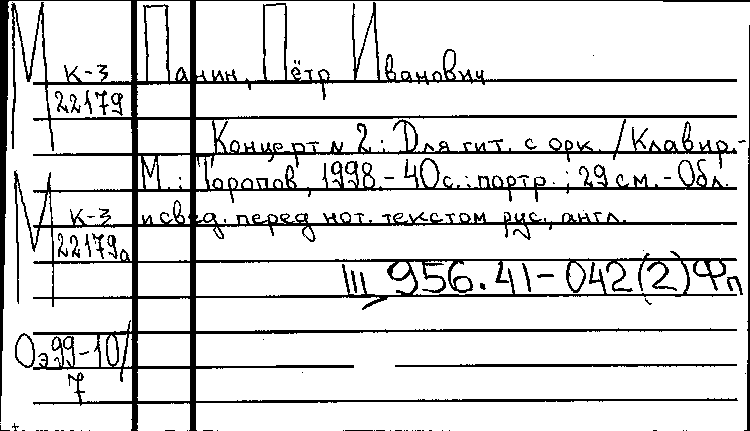 М Панин, Пётр Иванович
к-3
22179
Концерт № 2: Для гит. с орк. /Клавир.-
М.: Торопов, 1998.- 40с.: портр.; 29 см.- Обл.
М к-3 и свед. перед нот. текстом рус., англ.
22179а
Щ 956.41-042(2)Фп
Оэ99-10/
7